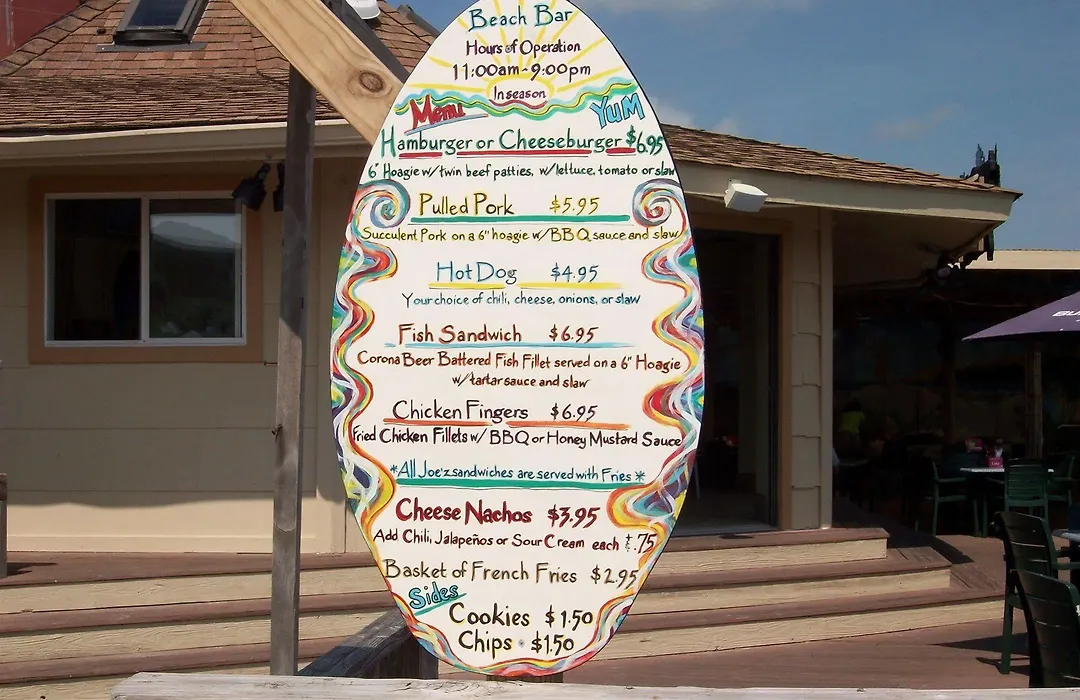 Beach Bar
Hours of Operation
11:00am-9:00pm
In season
Menu
YUM
Hamburger or Cheeseburger $6.95
6" Hoagie w/twin beef patties, w/lettuce, tomato or slaw
Pulled Pork $5.95
Succulent Pork on a 6" hoagie w/BBQ sauce and slaw
Hot Dog $4.95
Your choice of chili, cheese, onions, or slaw
Fish Sandwich $6.95
Corona Beer Battered Fish Fillet served on a 6" Hoagie
w/tartar sauce and slaw
Chicken Fingers $6.95
Fried Chicken Fillets w/ BBQ or Honey Mustard Sauce
*All Joe'z sandwiches are served with Fries *
Cheese Nachos $3.95
Add Chili, Jalapeños or Sour Cream each $.75
Basket of French Fries $2.95
Sides
Cookies $1.50
Chips $1.50